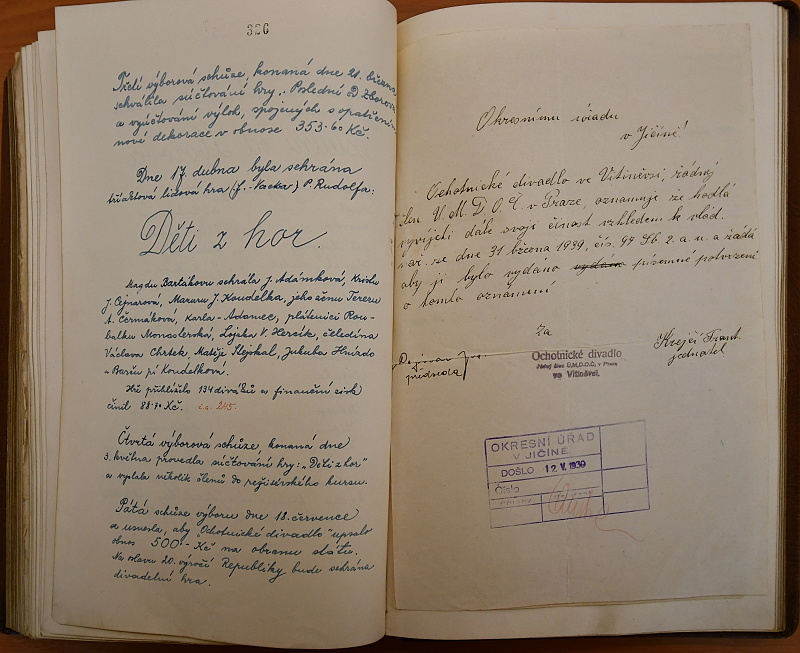 326
Třetí výborová schůze, konaná dne 21. března
schválila súčtování hry: „Poslední
a vyúčtování výloh, spojených s opatřením
nové dekorace v obnose 353·60 Kč.
Dne 17. dubna byla sehrána
tříaktová lidová hra (J. Vacka) P. Rudolfa:
Děti z hor.
Magdu Bartákovu sehrála J. Adámková, Kristu
J. Čejnárová, Maruru J. Koudelka, jeho ženu Tereru
A. Čermáková, Karla - Adamec, plátenici Rou-
balku Monoslerská, Lojzka V. Hersík, čeledína
Václava Chrtek, Matěje Slejskal, Jakuba Hnízdo
a Barču pí Koudelková.
Hře přihlíželo 134 diváků a finanční zisk
činil 88·70 Kč. č.a. 245.
Čtvrtá výborová schůze, konaná dne
3. května provedla súčtování hry: „Děti z hor"
a vyslala několik členů do režisérského kursu.
Pátá schůze výboru dne 18. července
a usnesla, aby "Ochotnické divadlo" upsalo
obnos 500·- Kč na obranu státu.
Na oslavu 20. výročí Republiky bude sehrána
divadelní hra.
Okresnímu úřadu
v Jičíně!
Ochotnické divadlo ve Vitiněvsi, řádný
člen Ú. M. D. O. Č. v Praze, oznamuje že hodlá
vyvíjeti dále svoji činost vzhledem k vlád.
nař. ze dne 31 března 1939, čís. 97 Sb. z. a. n. a žádá
aby jí bylo vydáno vydáno písemné potvrzení
o tomto oznámení
Za
Ochotnické divadlo
řádný člen Ú.M.D.O.Č. v Praze
ve Vitiněvsi.
předseda
Krejčí Frant
jednatel
OKRESNÍ ÚŘAD
V JIČÍNĚ
DOŠLO 12 V. 1939
Číslo